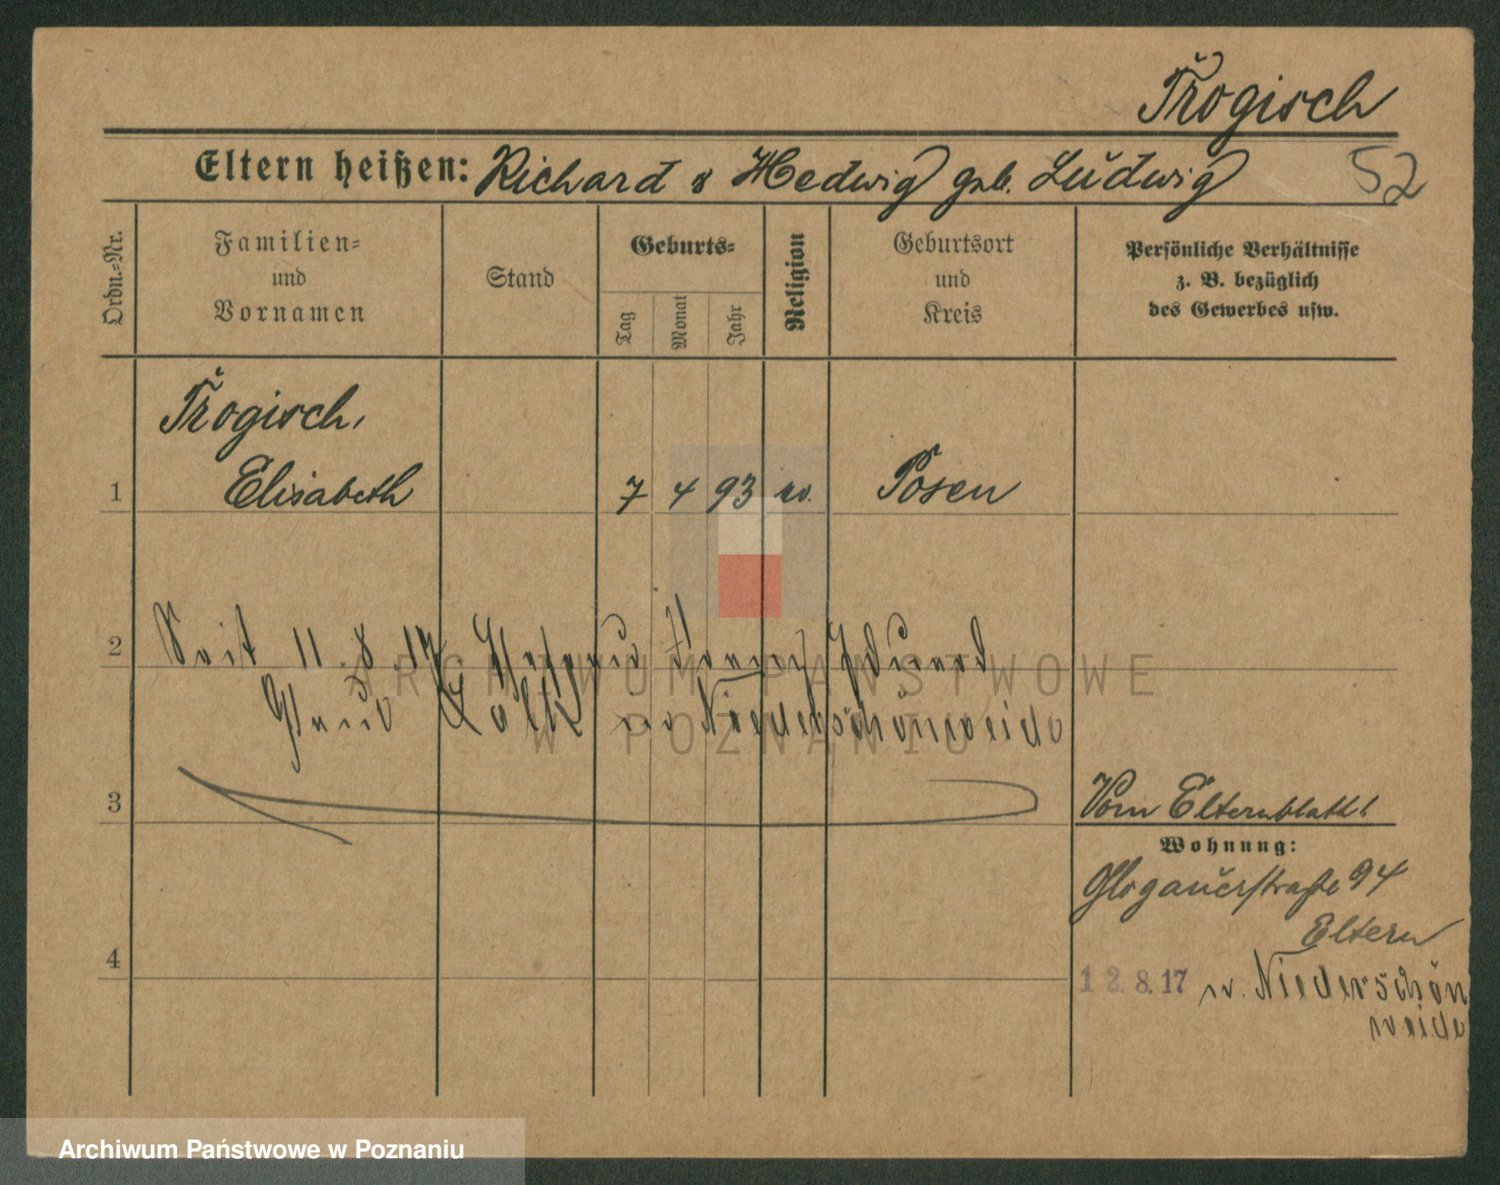 Trogisch
Eltern heißen: Richard & Hedwig geb. Ludwig 52
Ordn.-Nr.
Familien-
und
Vornamen
Stand
Geburts-
Tag
Monat
Jahr
Religion
Geburtsort
und
Kreis
Persönliche Verhältnisse
z. B. bezüglich
des Gewerbes usw.
Trogisch,
1 Elisabeth 7 4 93 ev. Posen
2 Seit 11.8.17 Franz Eduard
Paul in Niederschönweide
3
Vom Elternblatt!
Wohnung:
Glogauerstraße 94
Eltern
4
12.8.17 n. Niederschön
weide
ARCHIWUM PAŃSTWOWE
W POZNANIU
Archiwum Państwowe w Poznaniu